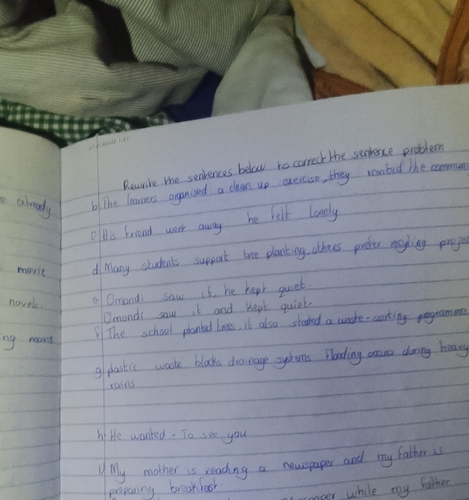 e already
movie
novels.
Rewrite the sentences below to correct the sentence problem
b. The learners organised a clean up exercise, they wanted the
c. His friend went away he felt lonely
d. Many students support tree planting, others prefer recycling
e. Omondi saw it, he kept quiet.
Omondi saw it and kept quiet.
f. The school planted trees, it also started a waste-sorting programme
g. plastic waste blocks drainage systems flooding occurs during heavy
rains
h. He wanted. To see you
My mother is reading a newspaper and my father is
preparing breakfast
while my father